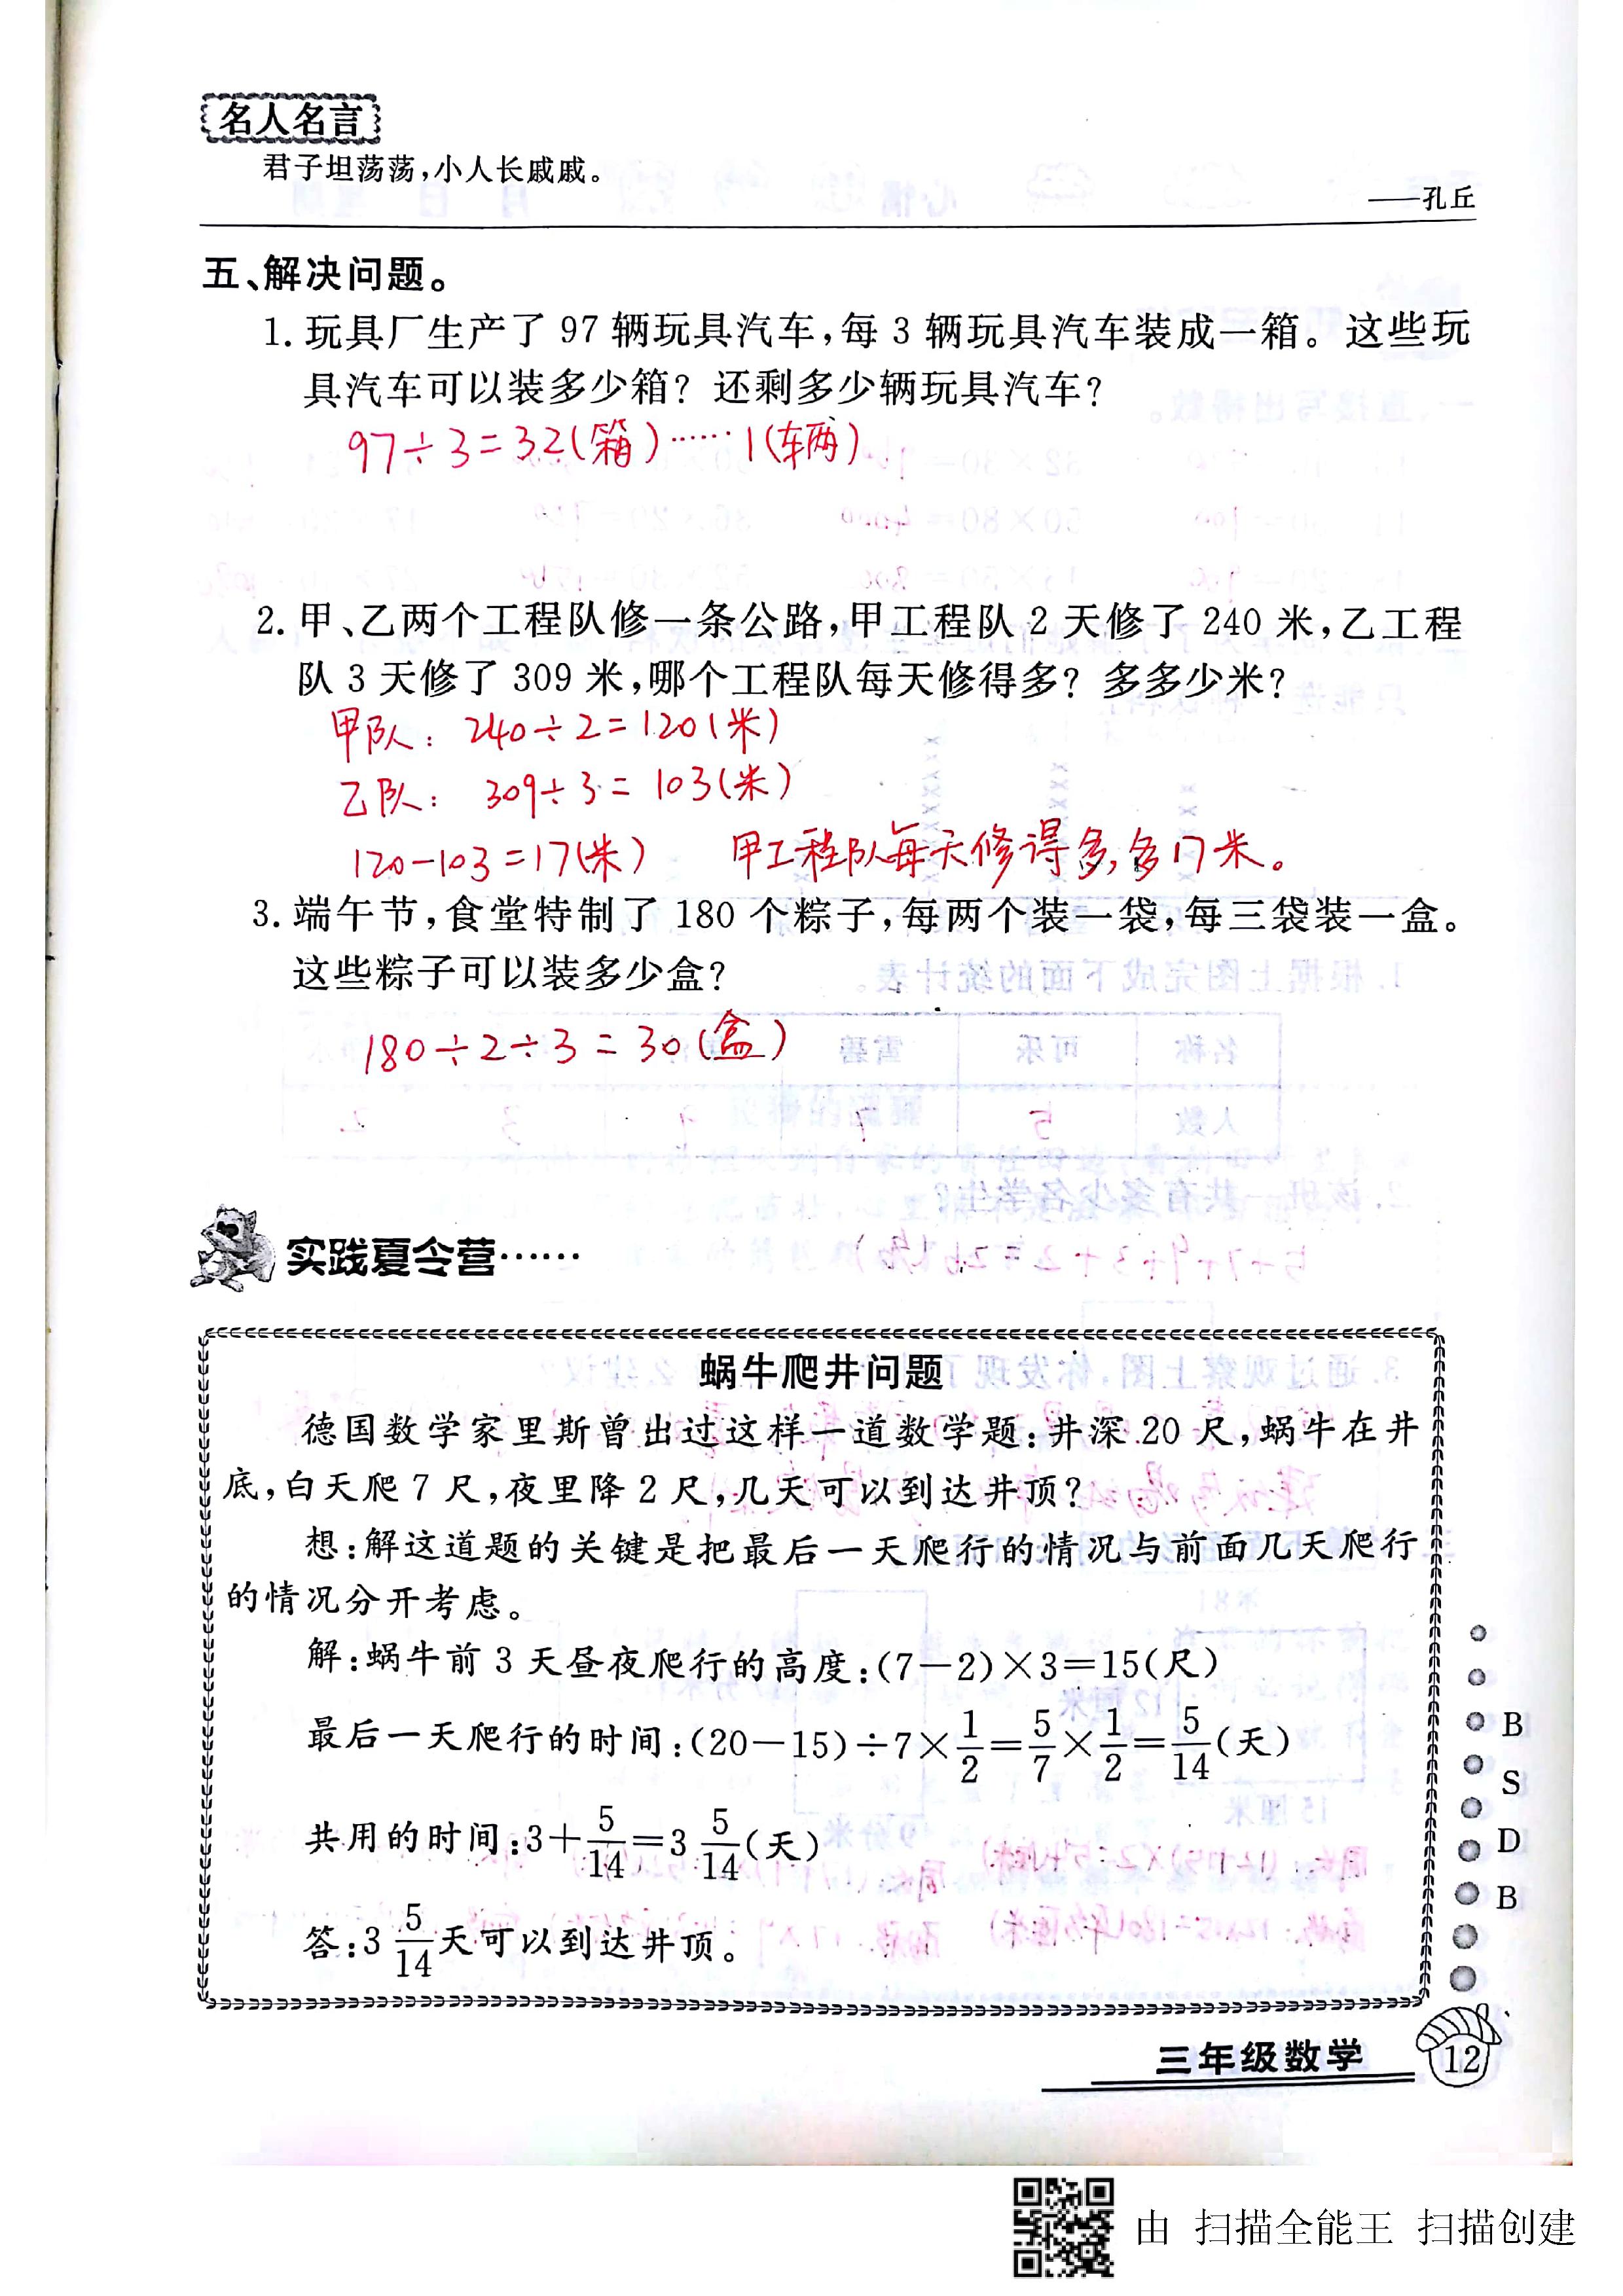 名人名言
君子坦荡荡,小人长戚戚。
——孔丘
五、解决问题。
1. 玩具厂生产了 97 辆玩具汽车,每 3 辆玩具汽车装成一箱。这些玩
具汽车可以装多少箱? 还剩多少辆玩具汽车?
97÷3=32(箱)……1(辆)
2. 甲、乙两个工程队修一条公路,甲工程队 2 天修了 240 米,乙工程
队 3 天修了 309 米,哪个工程队每天修得多? 多多少米?
甲队: 240÷2=120(米)
乙队: 309÷3=103(米)
120-103=17(米) 甲工程队每天修得多,多17米。
3. 端午节,食堂特制了 180 个粽子,每两个装一袋,每三袋装一盒。
这些粽子可以装多少盒?
180÷2÷3=30(盒)
实践夏令营……
蜗牛爬井问题
德国数学家里斯曾出过这样一道数学题:井深 20 尺,蜗牛在井
底,白天爬 7 尺,夜里降 2 尺,几天可以到达井顶?
想:解这道题的关键是把最后一天爬行的情况与前面几天爬行
的情况分开考虑。
解:蜗牛前 3 天昼夜爬行的高度:(7-2)×3=15(尺)
最后一天爬行的时间:(20-15)÷7×1/2=5/7×1/2=5/14(天)
共用的时间:3+5/14=3 5/14(天)
答:3 5/14天可以到达井顶。
B
S
D
B
三年级数学
12
由 扫描全能王 扫描创建